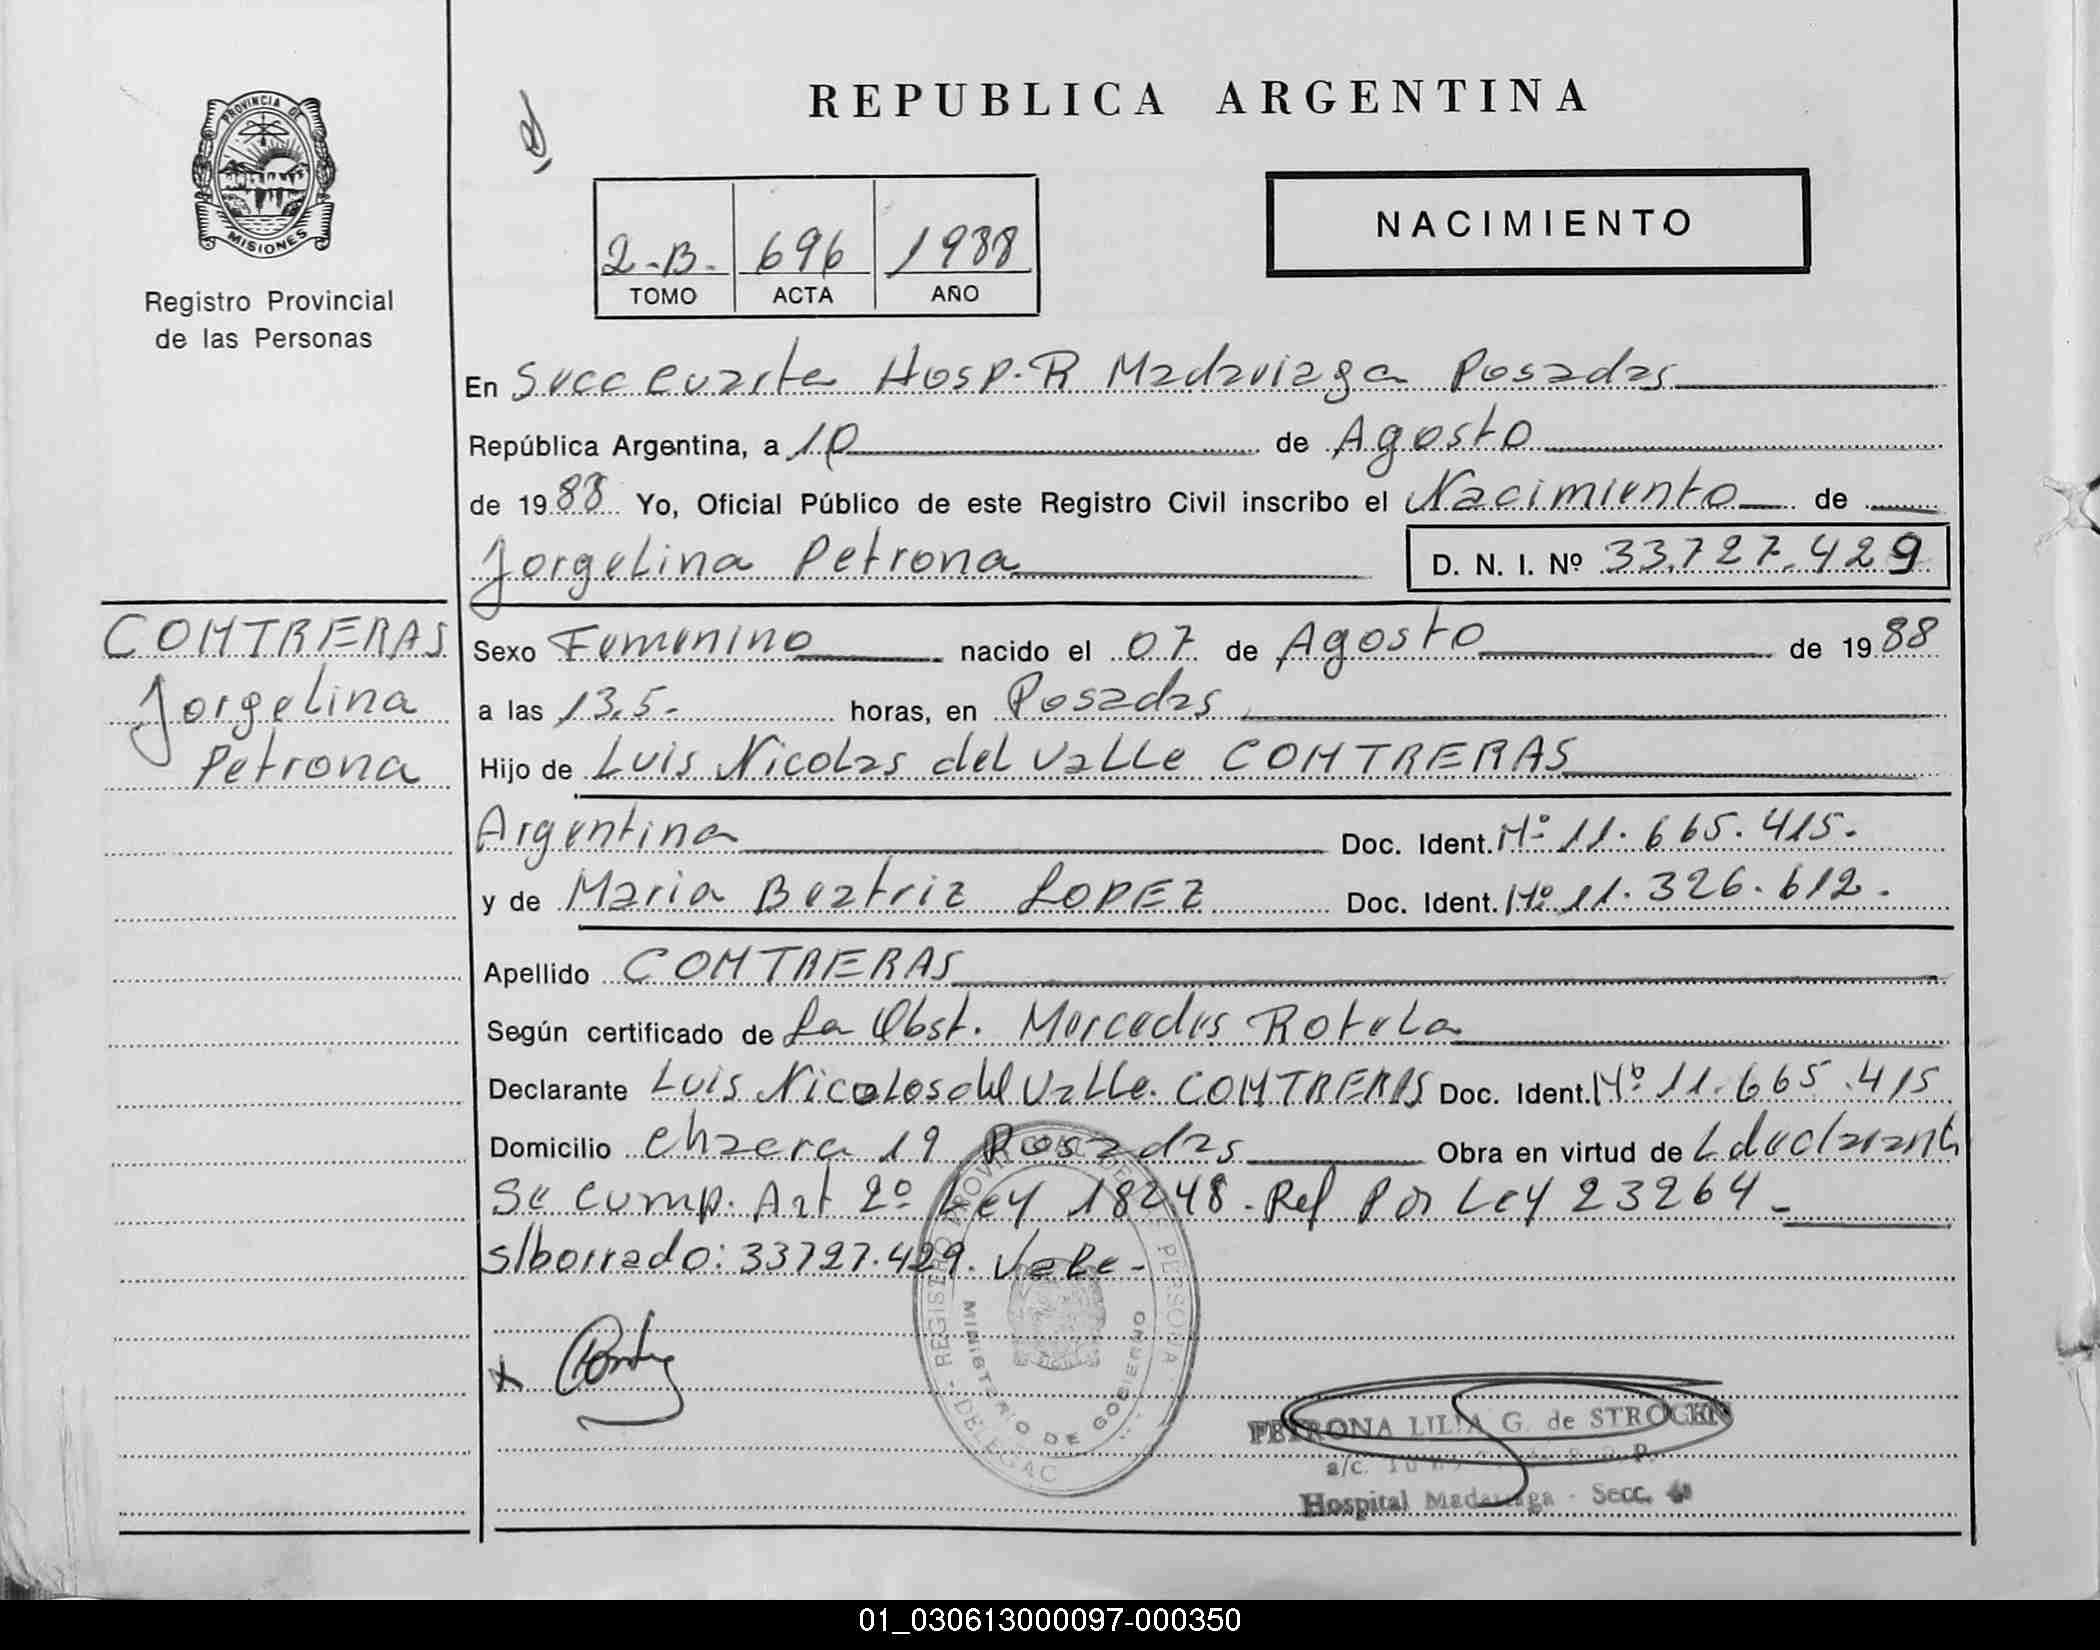 PROVINCIA DE
MISIONES
Registro Provincial
de las Personas
REPUBLICA ARGENTINA
2-B- 696 1988
TOMO ACTA AÑO
NACIMIENTO
En Secc cuarta Hosp. R Madariaga Posadas
República Argentina, a 10 de Agosto
de 1988 Yo, Oficial Público de este Registro Civil inscribo el Nacimiento de
Jorgelina Petrona D. N. I. Nº 33.727.429
CONTRERAS
Jorgelina
Petrona
Sexo Femenino nacido el 07 de Agosto de 1988
a las 13,5- horas, en Posadas
Hijo de Luis Nicolas del Valle CONTRERAS
Argentina Doc. Ident. Nº 11.665.415.
y de Maria Beatriz LOPEZ Doc. Ident. Nº 11.326.612.
Apellido CONTRERAS
Según certificado de La Obst. Mercedes Rotela
Declarante Luis Nicolas del Valle CONTRERAS Doc. Ident. Nº 11.665.415
Domicilio Chacra 19 Posadas Obra en virtud de L declarant
Se cump. Art 2º Ley 18248 - Ref Por Ley 23264 -
s/borrado: 33727.429. Vale -
REGISTRO PERSONA
MINISTERIO DE GOBIERNO
PETRONA LILIA G. de STROCEN
a/c.
Hospital Madariaga - Secc.
01_030613000097-000350